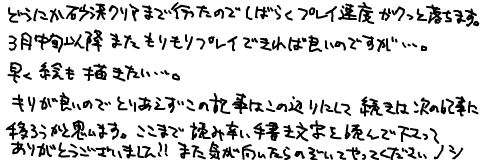 どうにか砂漠クリアまで行ったのでしばらくプレイ速度がクッと落ちます。
3月中旬以降またもりもりプレイできれば良いのですが…。
早く絵も描きたい…。
キリが良いのでとりあえずこの記事はこの辺りにして続きは次の記事に
移ろうかと思います。ここまで読み辛い手書き文字を読んで下さって
ありがとうございました!!また気が向いたらのぞいてやってください ノシ